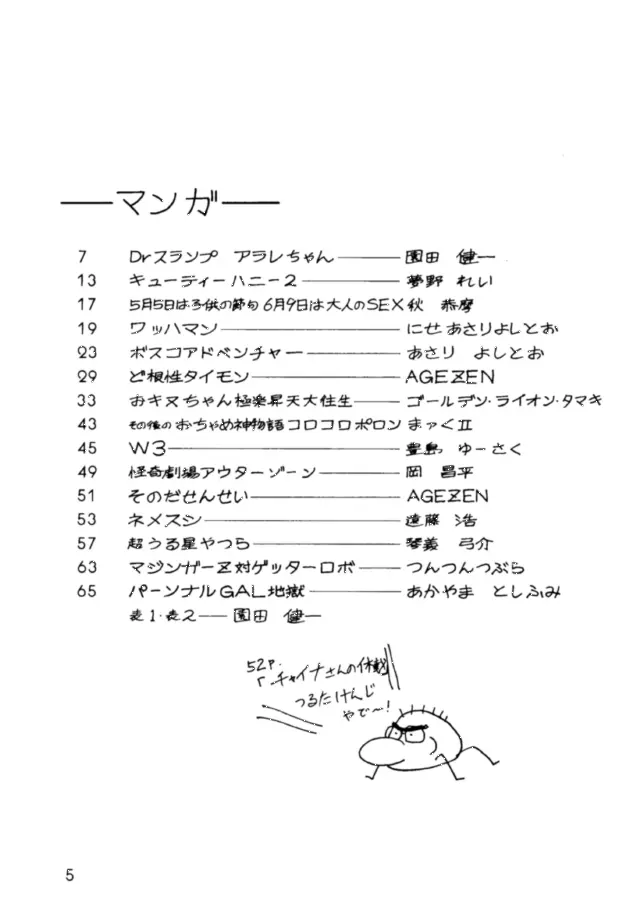 ──マンガ──
7 Drスランプ アラレちゃん────園田 健一
13 キューティーハニー2────夢野 れい
17 5月5日は子供の節句6月9日は大人のSEX 秋 恭摩
19 ワッハマン────にせ あさりよしとお
23 ボスコアドベンチャー────あさり よしとお
29 ど根性タイモン────AGEZEN
33 おキヌちゃん極楽昇天大往生────ゴールデン・ライオン・タマキ
43 その後のおちゃめ神物語コロコロポロン まァくII
45 W3────豊島 ゆーさく
49 怪奇劇場アウターゾーン────岡 昌平
51 そのだせんせい────AGEZEN
53 ネメスシ────遠藤 浩
57 超うる星やつら────琴義 弓介
63 マジンガーZ対ゲッターロボ────つんつんつぶら
65 パーンナルGAL地獄────あかやま としふみ
表1・表2──園田 健一
52P.
「チャイナさんの休戦
つるたけんじ
やで〜!
5